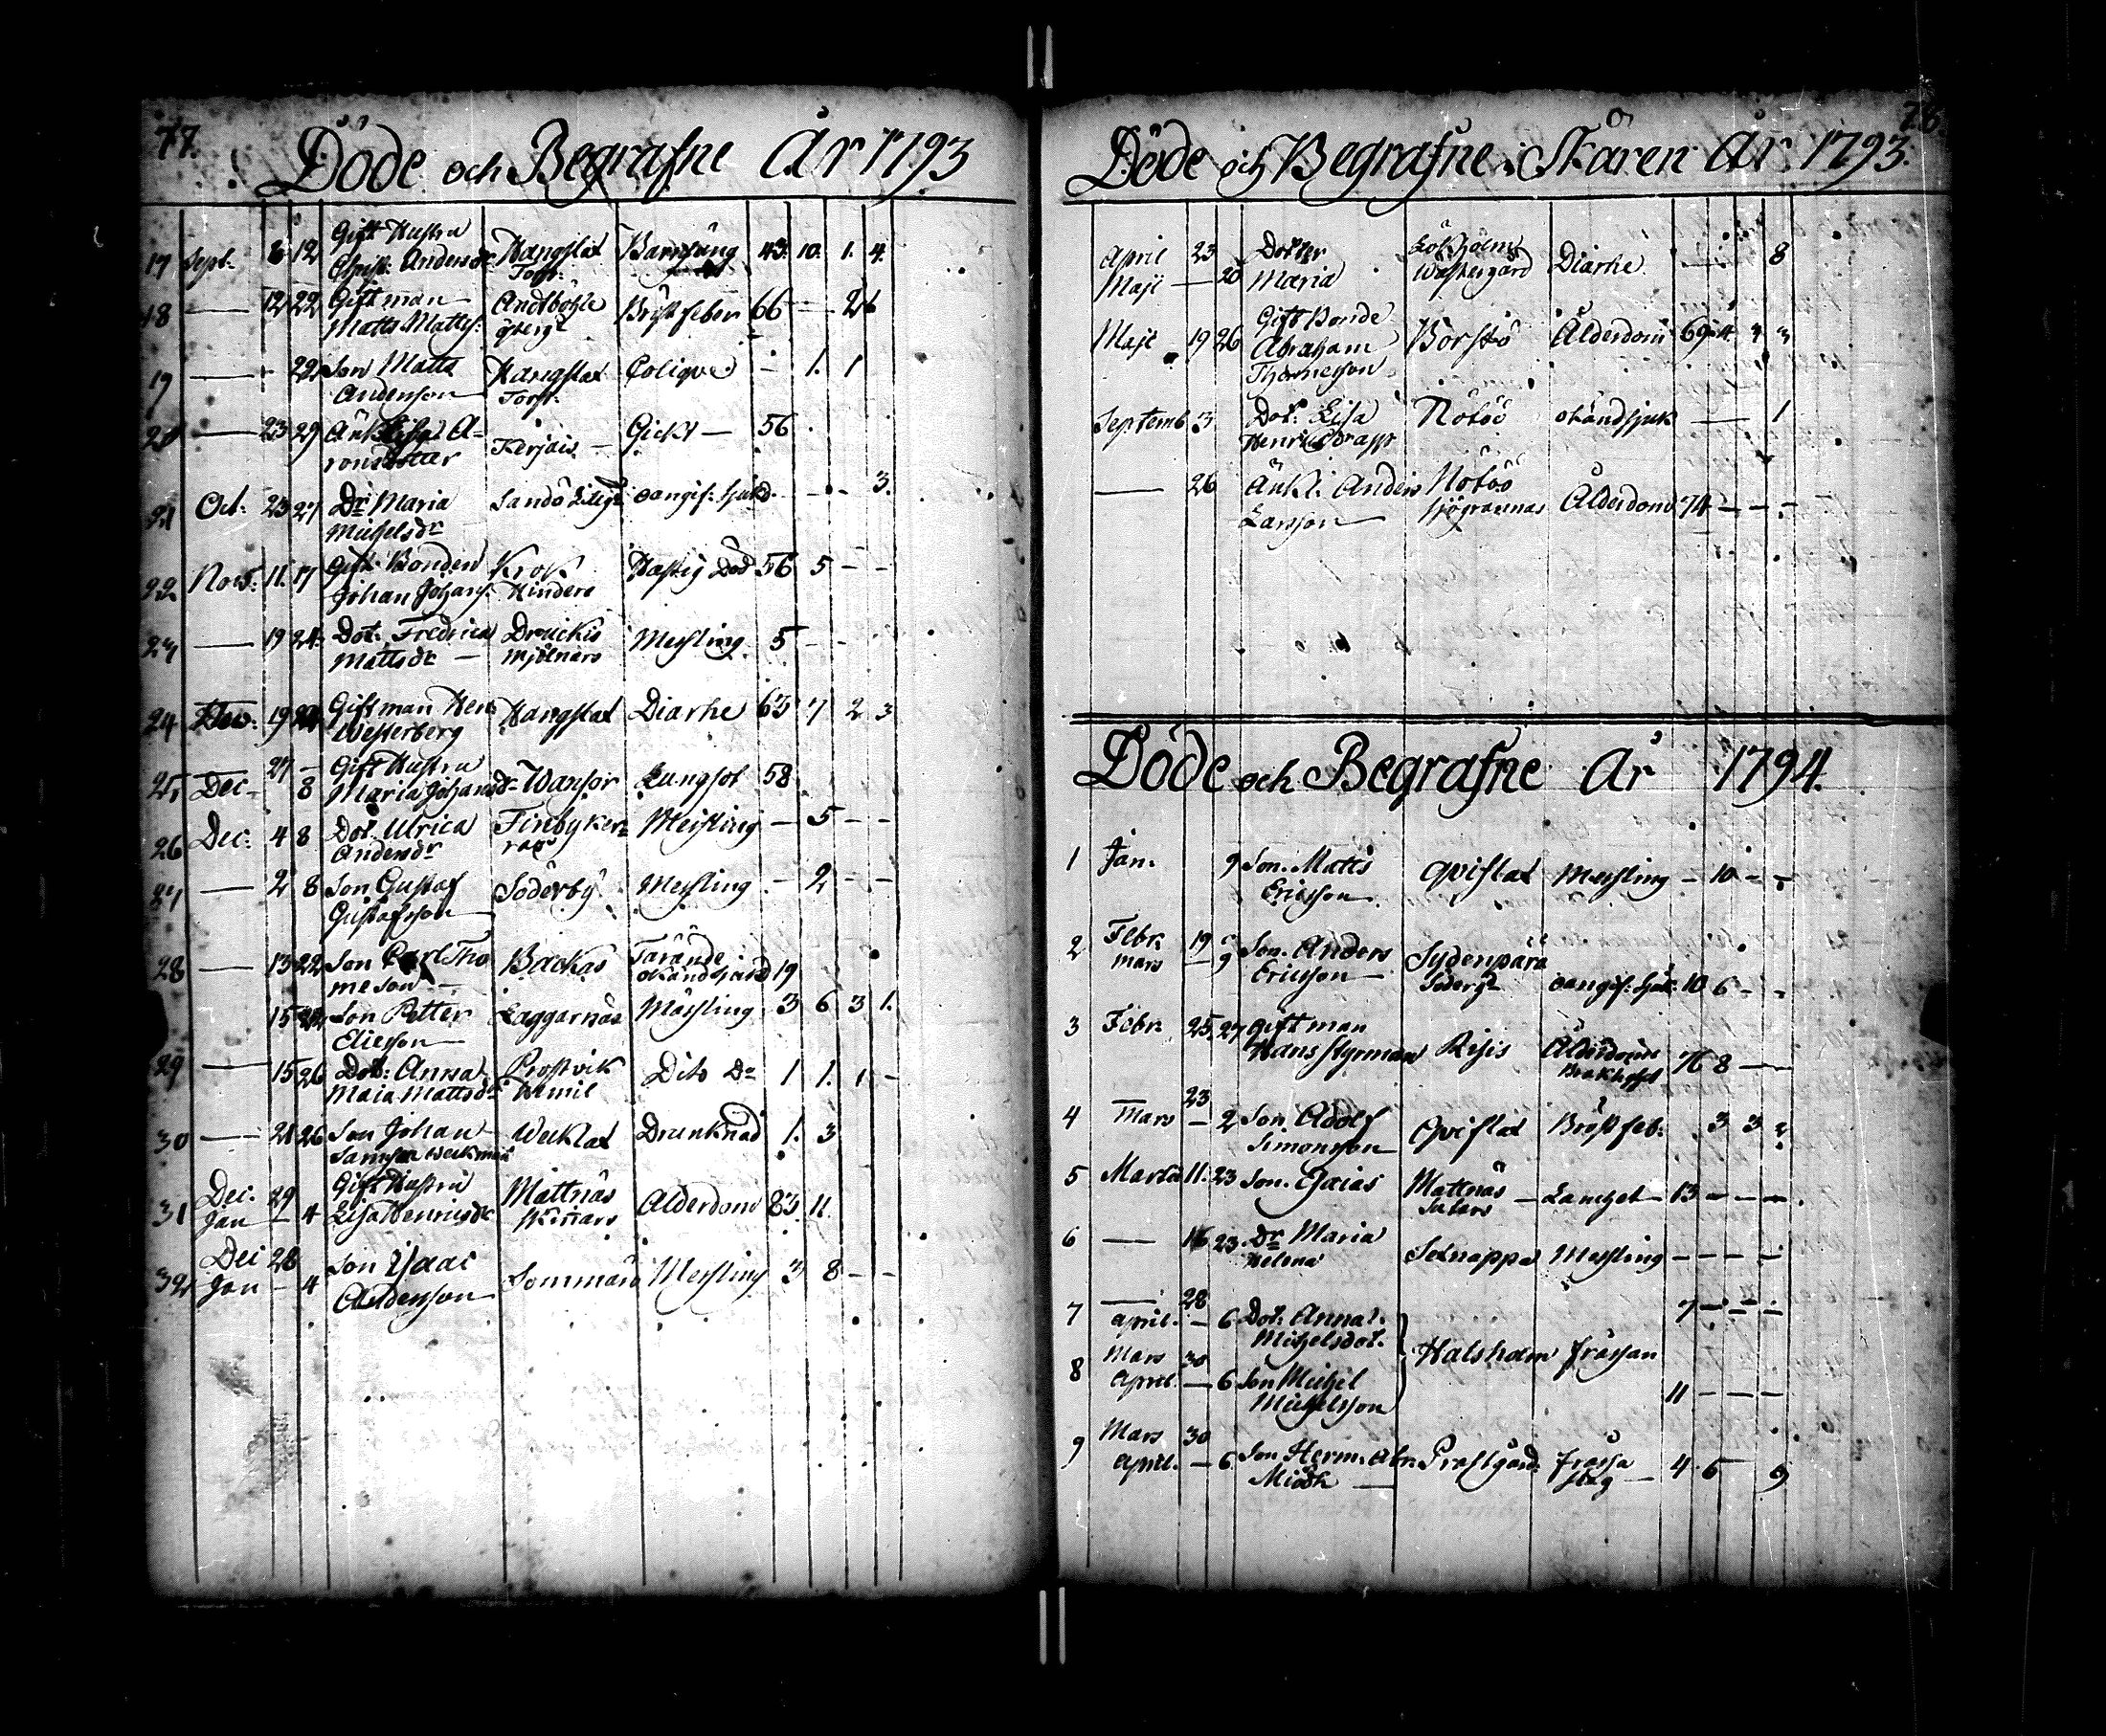 77.
Döde och Begrafne År 1793
Gift Hustru
17 Sept. 6 12 Christ: Andersdr Hangslax Barnsäng 43. 10. 1. 4.
Torp.
18 — 12 22 Gift man Andböhle Bröstfeber 66 —
Matts Matts:
19 — 22 Son Matts Hangslax Colique — 1. 1
Anderson Torp.
— 23 29 Änk. Lisa A= Kerjais — Gickt — 56
ronsdotter
Oct. 23 27 Dr Maria Sandö oangif: sjukd. — 3.
Michelsdr
22 Nov: 11. 17 Gift. Bonden Krok Hastig Död 56 5 — —
Johan Johans: Hinders
23 — 19 24 Dot. Fredrica Druckis Messling 5 — —
Mattsdr — Mjölnars
24 19 Gift man Hen: Hangslax Diarhe 63 7 2 3
Westerberg
27 — Gift Hustru
25 Dec 8 Maria Johansdr Wansor Lungsot 58
26 Dec: 4 8 Dot. Ulrica Finby Messling — 5 — —
Andersdr
27 — 2 8 Son Gustaf Söderby Messling — 2 — —
Gustafsson
28 — 13 22 Son Carl Tho Backas Tärande 19
meson — okänd sjukd
15 22 Son Petter Laggarnäs Mässling 3 6 3 1.
Ericsson
29 — 15 26 Dot: Anna Prostvik Dito Do 1 1. 1 —
Maja Mattsdr Wimil
30 — 21 26 Son Johan Wecklax Drunknad 1. 3
Dec. 29 Gift Hustru Mattnäs
31 Jan — 4 Lisa Henricsdr Skinnars Ålderdom 83 11.
Dec 28 Son Isaac
32 Jan — 4 Anderson Sommarö Messling 3 8 — —
78.
Döde och Begrafne i Skären År 1793.
April 23 Dotter Lökholm
Maji — 20 Maria Wästergård Diarhe — — 8
Gift Bonde
Maji 19 26 Abraham Borstö Ålderdom 69 4
Thomesson
Septemb 3 Dot: Lisa Nötöö okänd sjuk — 1
Henricsdr
— 26 Änkl. Anders Nötöö
Larsson Sjögrannas Ålderdom 74 — — —
Döde och Begrafne År 1794.
1 Jan. 9 Son. Matts Qvislax Messling — 10 — —
Ericsson
2 Febr. 19 Son. Anders Sydenpärä
mars — 9 Ericsson — Söderg oangif: sjuk: 10 6 — —
3 Febr. 25 27 Gift man Ålderdom
Hans Styrman Risis 76 8 — —
23
4 Mars — 2 Son Adolf Qvislax Bröstfeb: 3 3
Simonsson
5 Martii 11. 23 Son. Esaias Mattnäs — 13 — — —
6 — 16 23 Dr Maria Selnappa Messling — — — —
Helena
— 28
7 April. — 6 Dot. Anna 7 — — —
Michelsdot.
Halsholm frässan
Mars 30
8 April — 6 Son Michel
Michelsson 11 — — —
Mars 30
9 April. — 6 Son Herm. Abr. Prostgård frässa 4 6 9